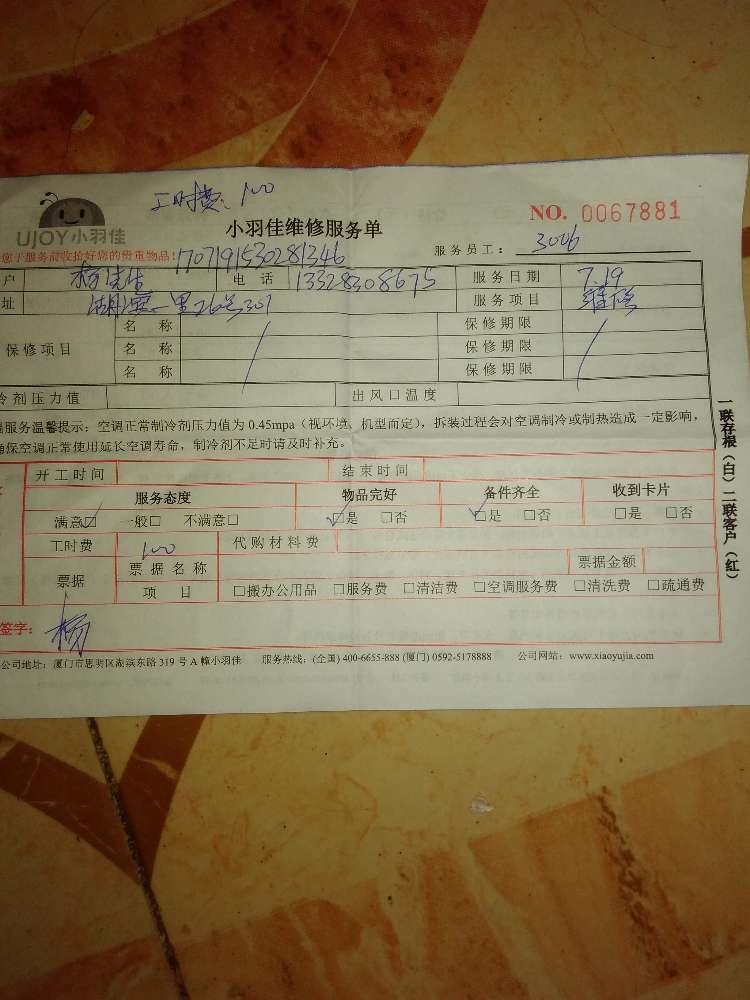 工时费：100
UJOY小羽佳
小羽佳维修服务单
NO. 0067881
服务员工： 3006
您于服务前收拾好您的贵重物品！
1707191530281346
户 杨先生 电话 13328308675 服务日期 7.19
址 湖滨一里26号307 服务项目 维修
保修项目 名称 保修期限
名称 保修期限
名称 保修期限
冷剂压力值 出风口温度
服务温馨提示：空调正常制冷剂压力值为 0.45mpa（视环境、机型而定），拆装过程会对空调制冷或制热造成一定影响，
确保空调正常使用延长空调寿命，制冷剂不足时请及时补充。
开工时间 结束时间
服务态度 物品完好 备件齐全 收到卡片
满意☑ 一般□ 不满意□ ☑是 □否 ☑是 □否 □是 □否
工时费 100 代购材料费
票据 票据名称 票据金额
项目 □搬办公用品 □服务费 □清洁费 □空调服务费 □清洗费 □疏通费
签字： 杨
公司地址：厦门市思明区湖滨东路 319 号 A 幢小羽佳 服务热线：(全国) 400-6655-888 (厦门) 0592-5178888 公司网站：www.xiaoyujia.com
一联存根（白）二联客户（红）